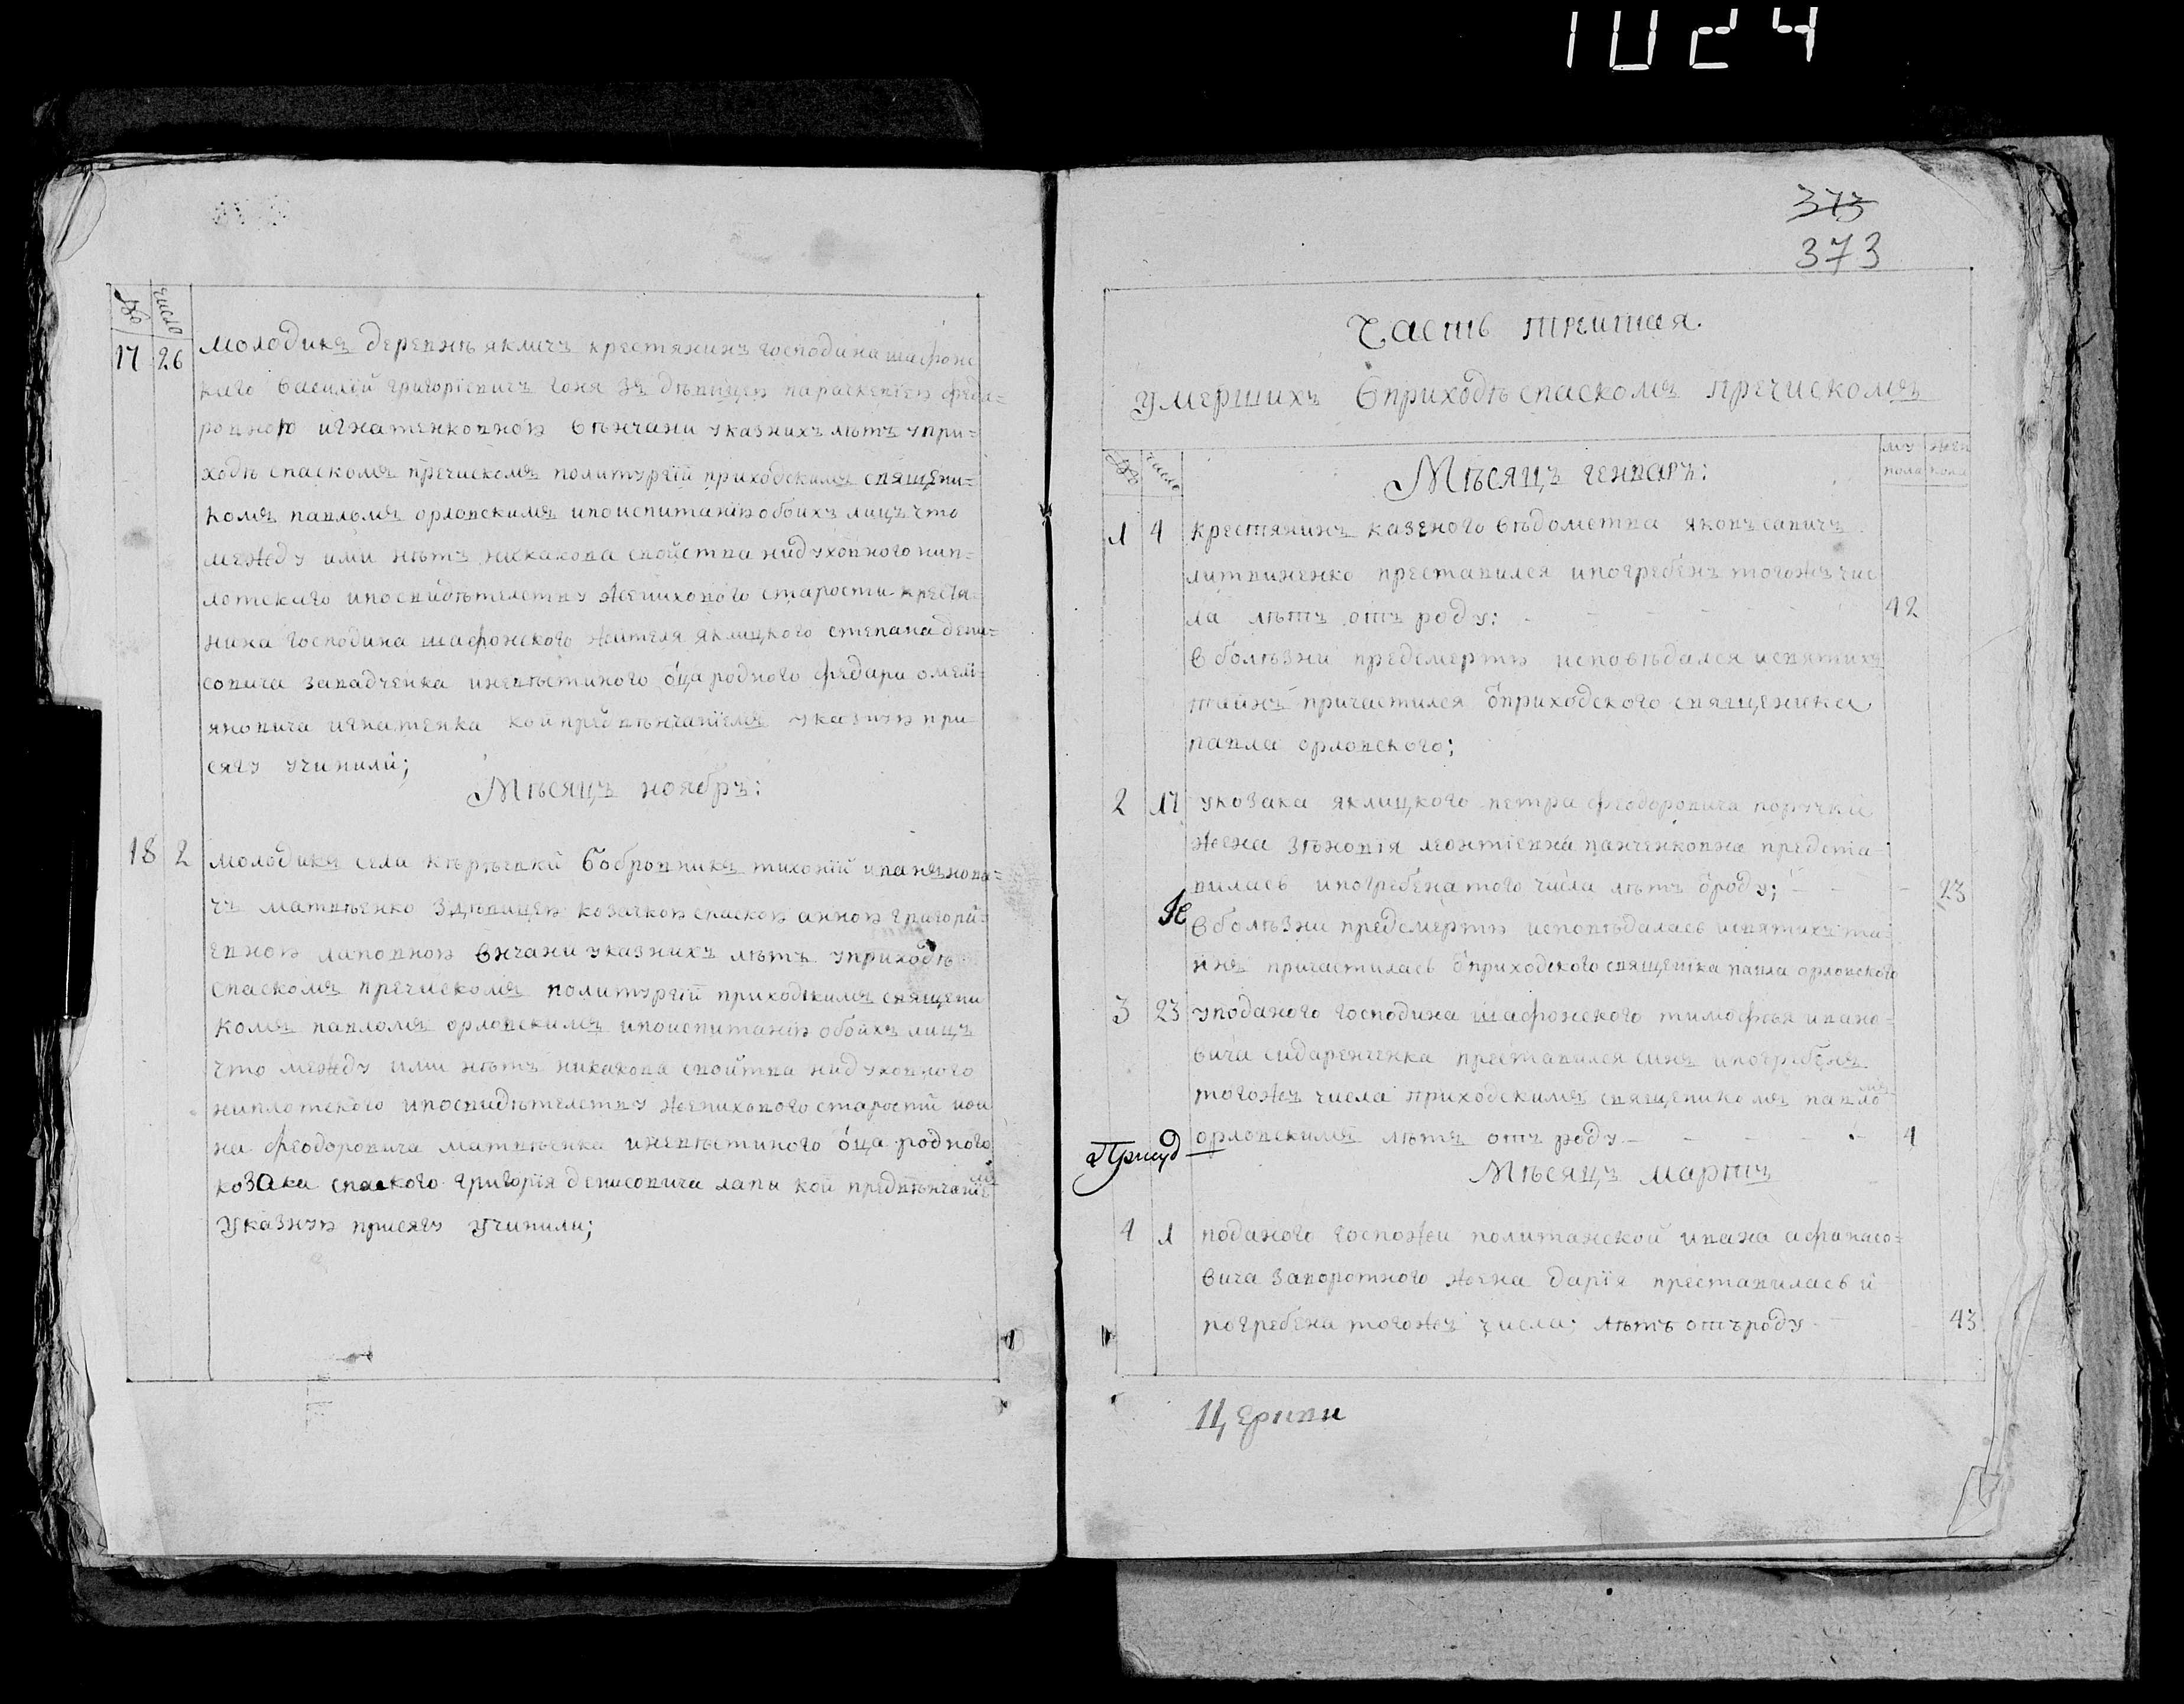 1024
№ число
17 26 Молодикъ деревнѣ якличъ крестянинъ господина шафонс
каго Василій григоріевичъ гоня зъ дѣвицею параскевіею феда=
ровною игнатенковною вѣнчани указнихъ лѣтъ упри=
ходѣ спаскомъ пречискомъ политургій приходскимъ священи=
комъ павломъ орловскимъ ипоиспитанію обоихъ лицъ что
между ими нѣтъ никакова свойства нидуховного нип=
лотскаго ипосвидѣтелству женихового старости крестя=
нина господина шафонского жителя яклицкого степана дени=
совича западченка иневѣстиного оца родного федара омелі
яновича игнатенка кой предвѣнчаніемъ указную при
сягу учинили;
Мѣсяцъ ноябръ:
18 2 молодикъ села вобровника тихоній иванянови=
чъ матвѣенко здѣвицею козачкою спаскою анною григорі=
евною лаповною внчани указнихъ лѣтъ уприходѣ
спаскомъ пречискомъ политургій приходскимъ священи
комъ павломъ орловскимъ ипоиспитанію обоихъ лицъ
что между ими нѣтъ никакова свойтва нидуховного
ниплотского ипосвидѣтелству женихового старостй ива
на феодоровича матвѣенка иневѣстиного оца родного
козака спаского григорія денисовича лапи кой предвѣнчаніемъ
указную присягу учинили;
373
373
Часть третая.
умершихъ вприходѣ спаскомъ пречискомъ
№ число муж пола жен пола
Мѣсяцъ генваръ:
1 4 крестянинъ казеного вѣдометва яковъ савичъ
литвиненко преставился ипогребенъ тогожъ чис
ла лѣтъ отъ роду: 42
в болѣзни предсмертю исповѣдался исвятихъ
тайнъ причастился ѿприходского священика
павла орловского;
2 17 укозака яклицкого петра феодоровича
жена зѣновія леонтіевна панченковна предста=
вилась ипогребена того числа лѣтъ ѿроду; 23
в болѣзни предсмертю исповѣдалась исвятихъ та=
йнъ причастилась ѿприходского священика павла орловского
3 23 уподаного господина шафонского тимофѣя ивано=
вича сидаренченка преставился синъ ипогребенъ
тогожъ числа приходскимъ священикомъ павломъ
орловскимъ лѣтъ отъ роду 4
Мѣсяцъ мартъ
4 1 поданого госпожи политанской ивана афанасо=
вича запоротного жена дарія преставилась й
погребена тогожъ числа; лѣтъ отъ роду 43
Церкви